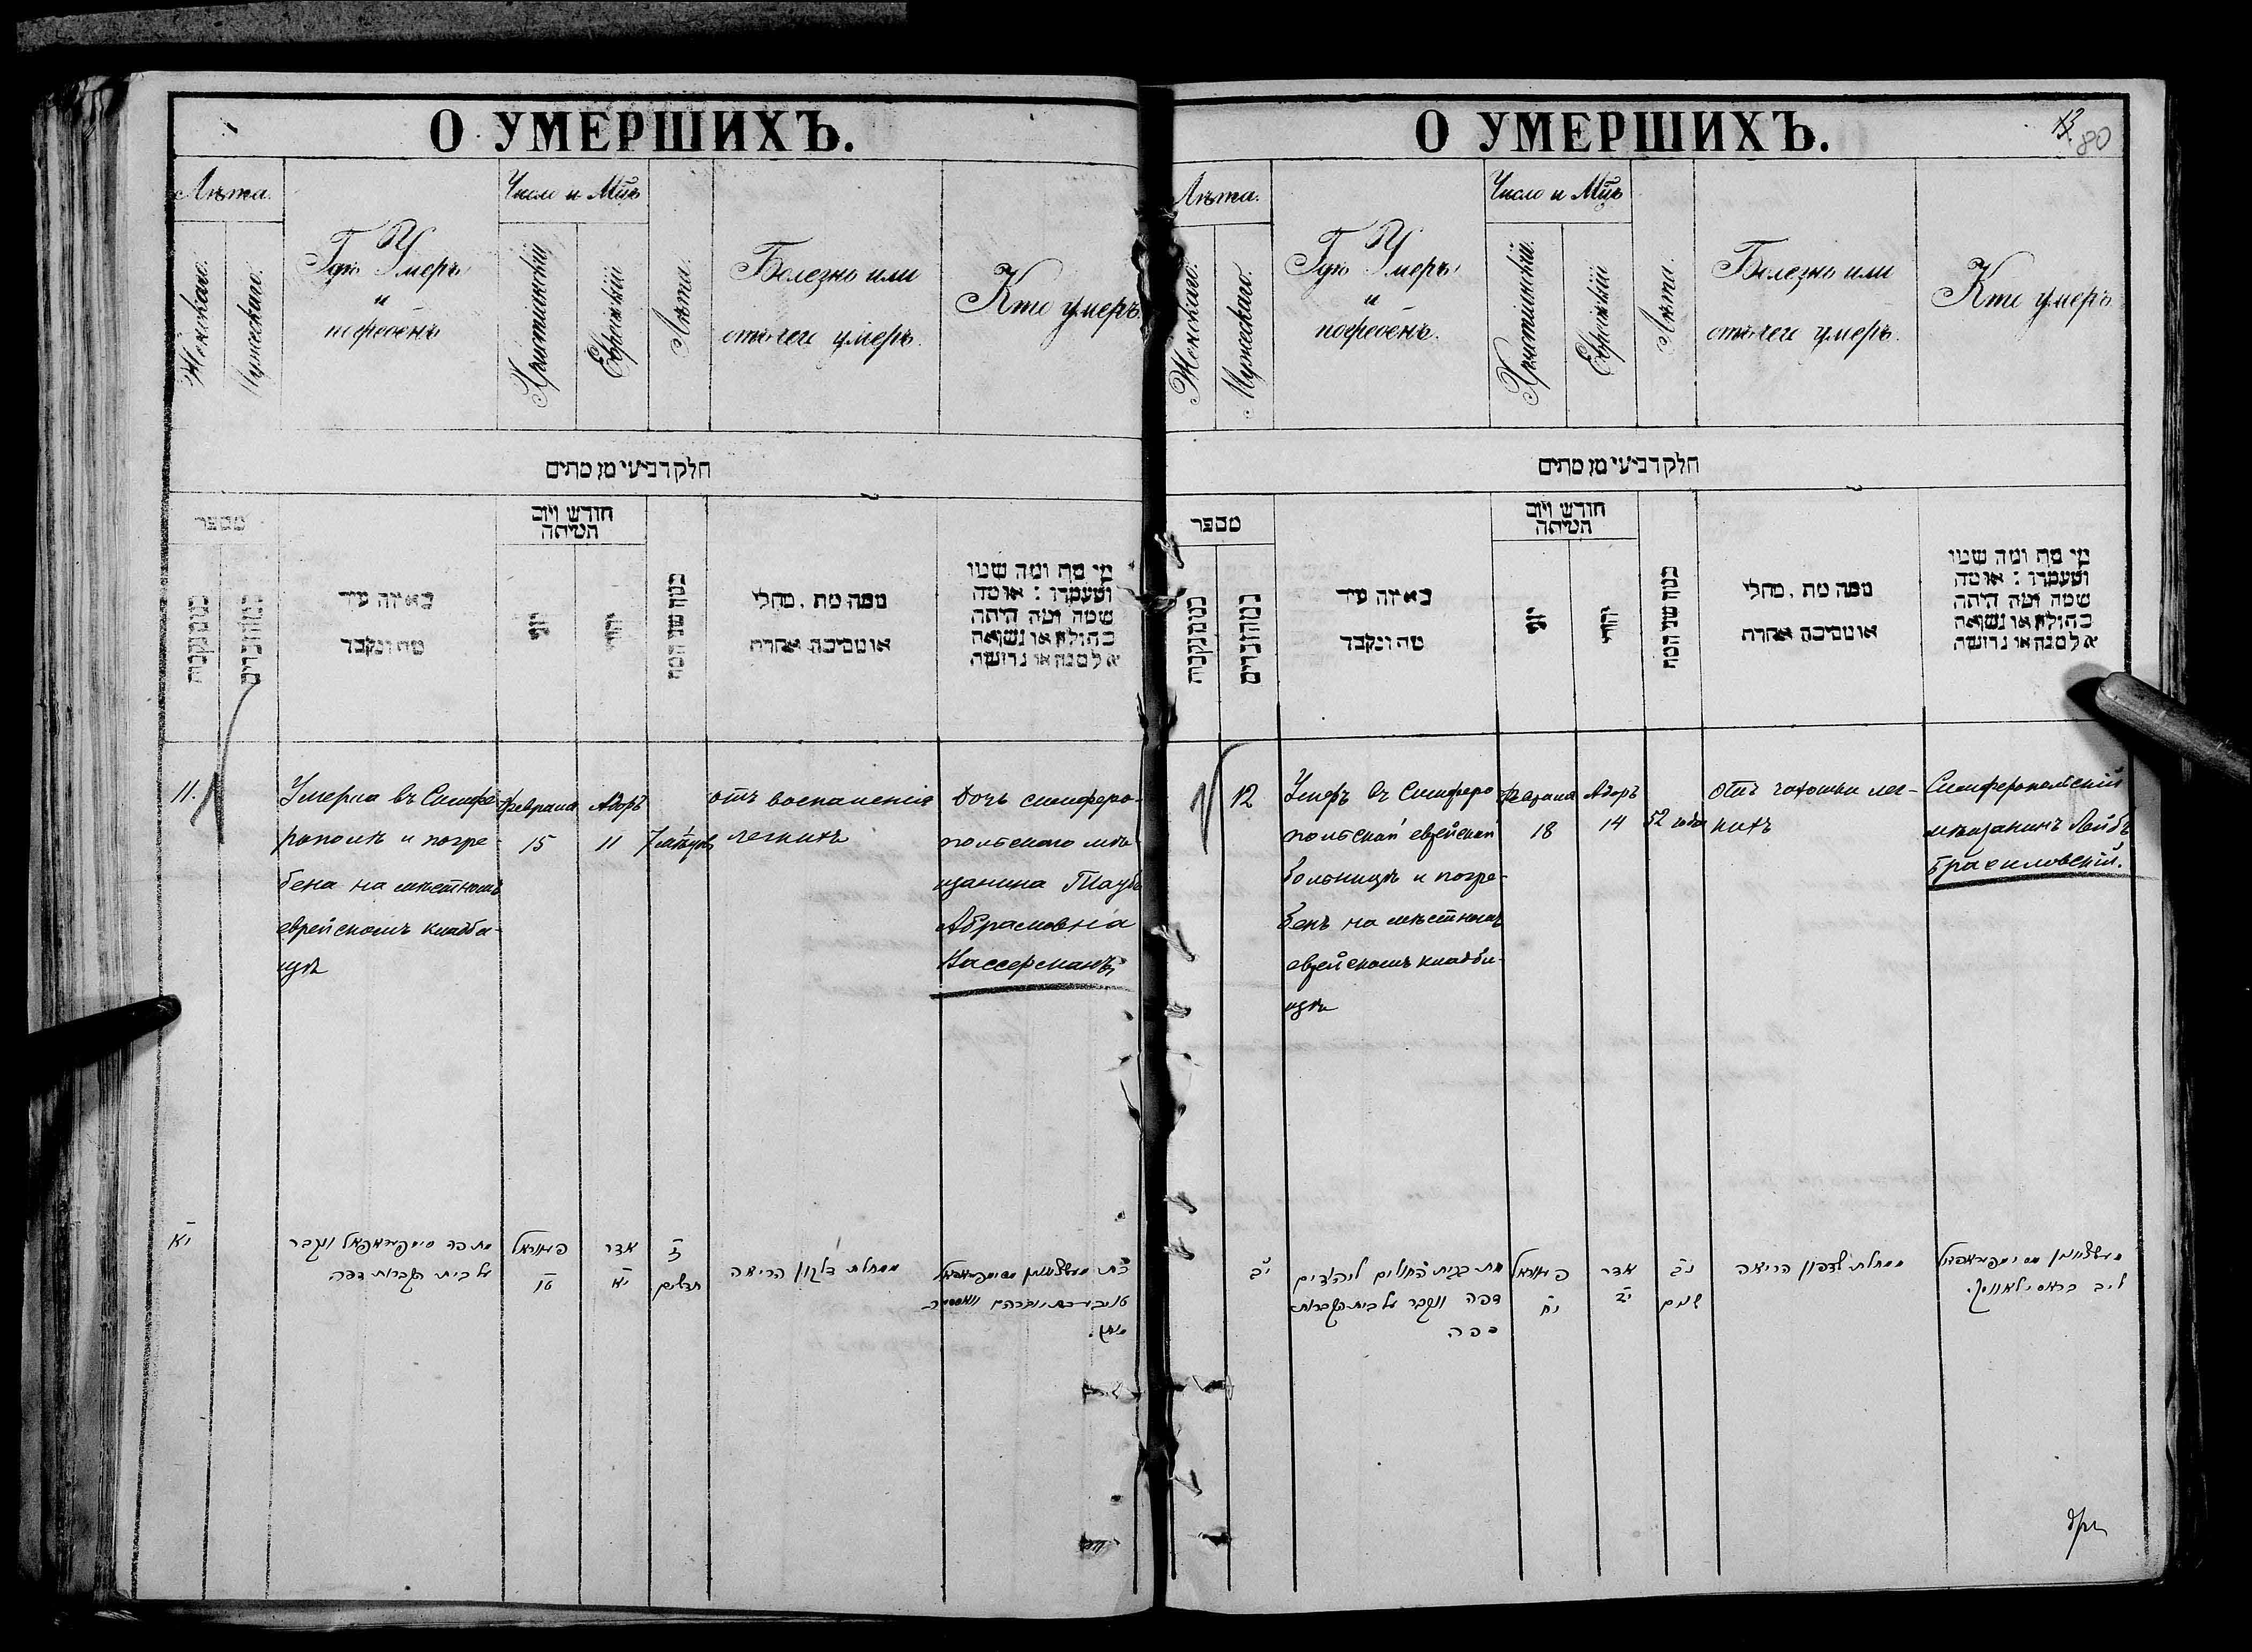 О УМЕРШИХЪ.
Лѣта.
Женскаго.
Мужескаго.
Гдѣ Умеръ
и
погребенъ
Число и Мц͠ъ
Христіянскій
Еврейскій
Лѣта.
Болезнь или
отъ чего умеръ.
Кто умеръ.
חלק רביעי מן מתים
מספר
מהנקבות
מהזכרים
באיזה עיר
מת ונקבר
חודש ויום
המיתה
יוני
יהודי
ממה מת, מחלי
או מסיבה אחרת
מי מת ומה שמו
ומעמדו : או מה
שמה ומה היתה
בתולה או נשואה
אלמנה או גרושה
11.
Умерла въ Симфе-
рополѣ и погре-
бена на мѣстномъ
еврейскомъ кладби-
щѣ
Февраля
15
Адоръ
11
отъ воспаленія
легкихъ
Дочь симферо-
польского мѣ-
щанина Таубе
Абрамовна
Вассерманъ
יא
מתה פה סימפעראפאל ונקבר
על בית הקברות דפה
פעווראל
טו
אדר
יא
ז
חדשים
ממחלת דלקון הריאה
О УМЕРШИХЪ.
13
80
Лѣта.
Женскаго.
Мужескаго.
Гдѣ Умеръ
и
погребенъ.
Число и Мц͠ъ
Христіянскій.
Еврейскій
Лѣта.
Болезнь или
отъ чего умеръ.
Кто умеръ.
חלק רביעי מן מתים
מספר
מהנקבות
מהזכרים
באיזה עיר
מת ונקבר
חודש ויום
המיתה
יוני
יהודי
ממה מת, מחלי
או מסיבה אחרת
מי מת ומה שמו
ומעמדו : או מה
שמה ומה היתה
בתולה או נשואה
אלמנה או גרושה
12
Умеръ въ Симферо
польской еврейской
больницѣ и погре-
бенъ на мѣстномъ
еврейскомъ кладби-
щѣ
Февраля
18
Адоръ
14
52 года
Отъ чахотки лег-
кихъ
Симферопольскій
мѣщанинъ Лейбъ
Брасиловскій.
יב
מת בבית החולים ליהודים
דפה ונקבר על בית הקברות
דפה
פעווראל
יח
אדר
נב
שנים
ממחלת שדפון הריאה
ליב בראסילאווסקי.